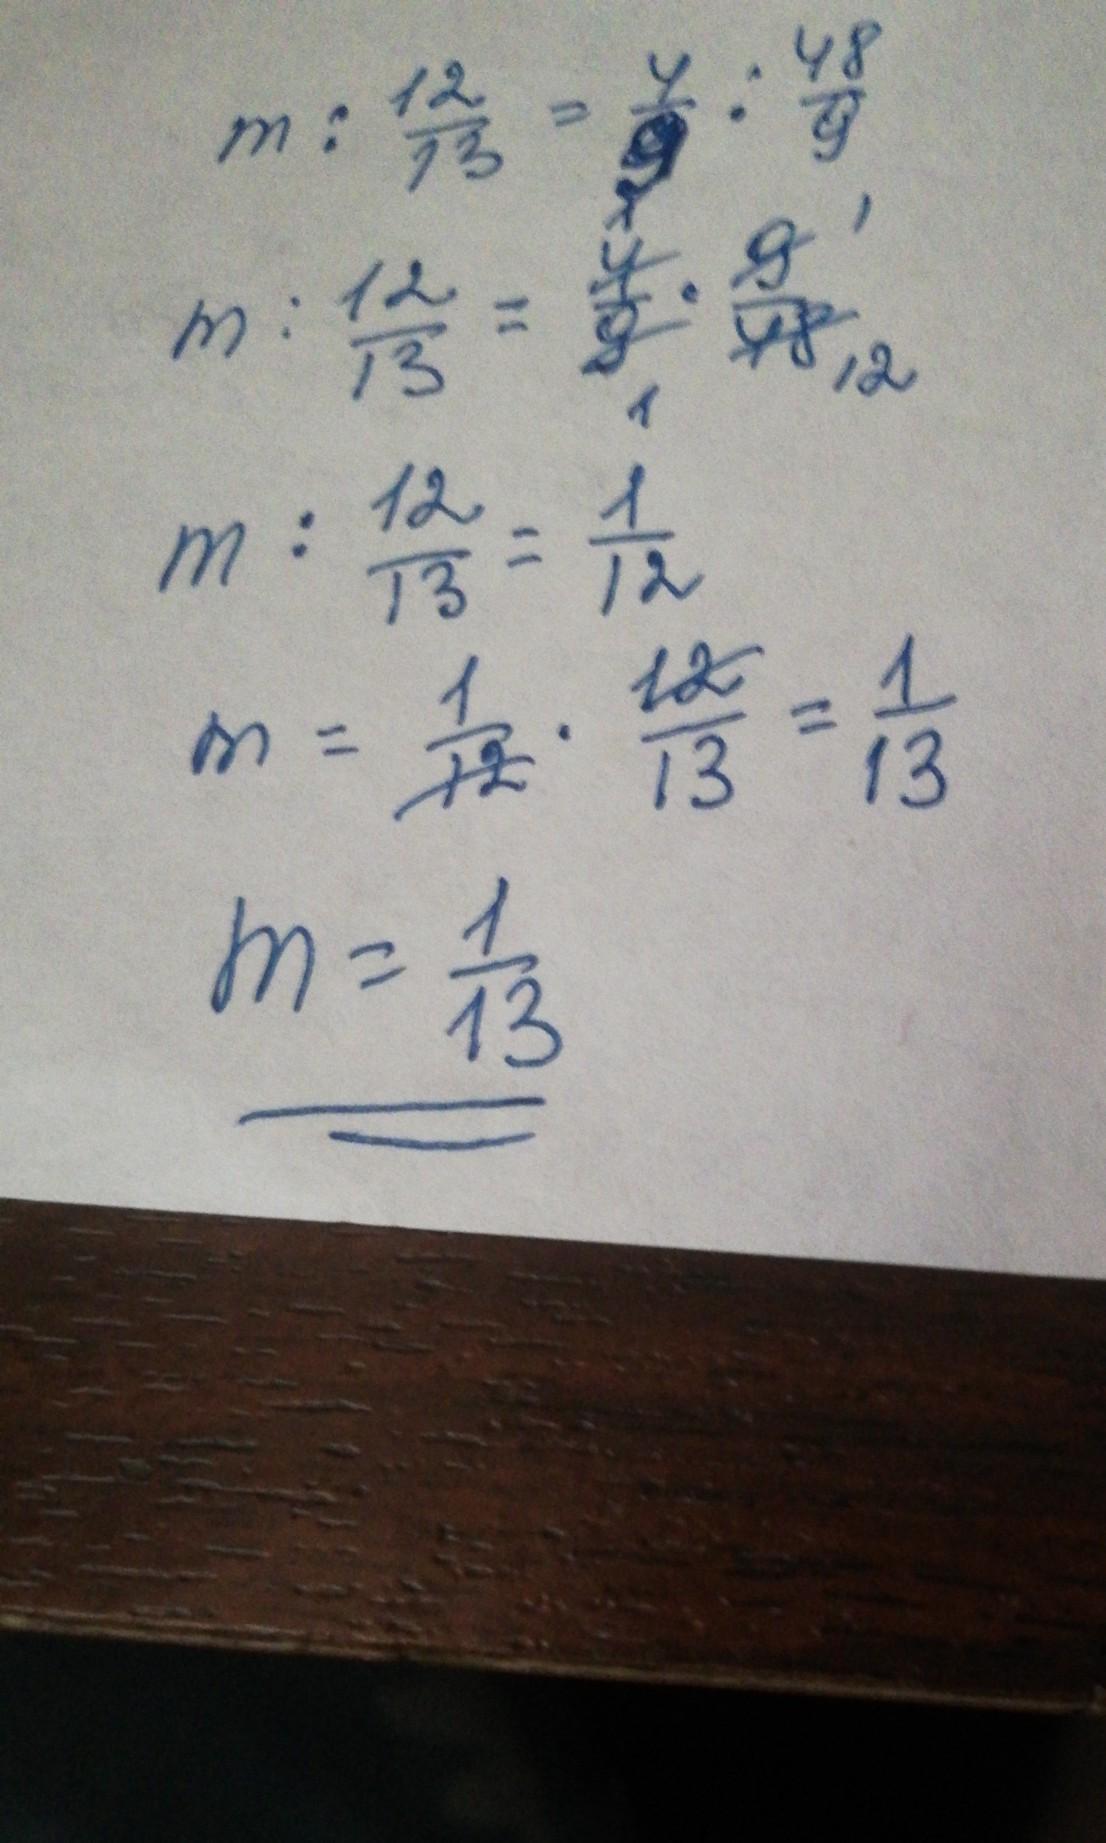 m : 12/13 = 4/9 : 48/9
m : 12/13 = 4/9 · 9/48 1 1 1 12
m : 12/13 = 1/12
m = 1/12 · 12/13 = 1/13
m = 1/13